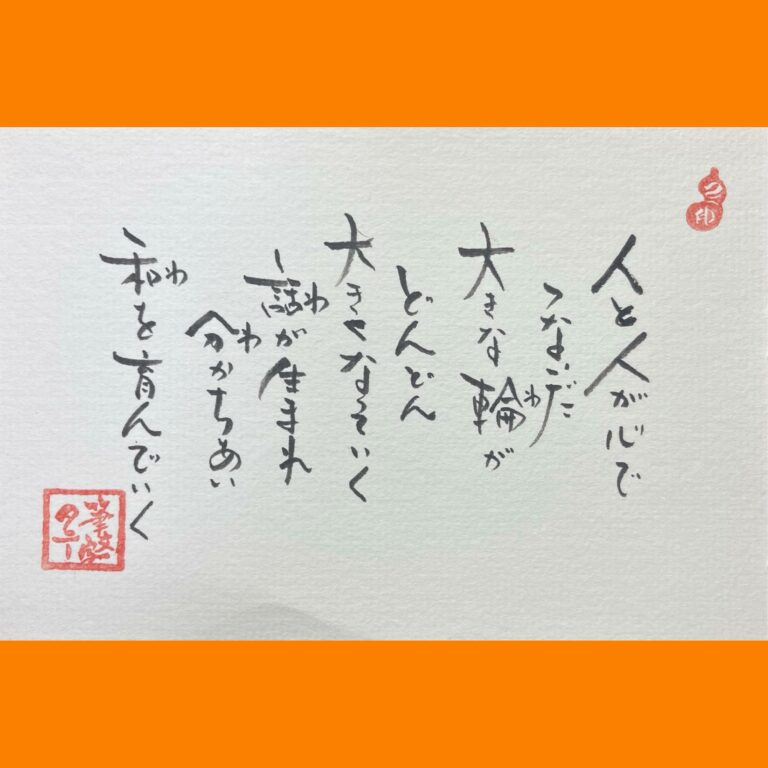 人と人が心で
つないだ
大きな輪が
わ
どんどん
大きくなっていく
話が生まれ
わ
分かちあい
わ
和を育んでいく
わ